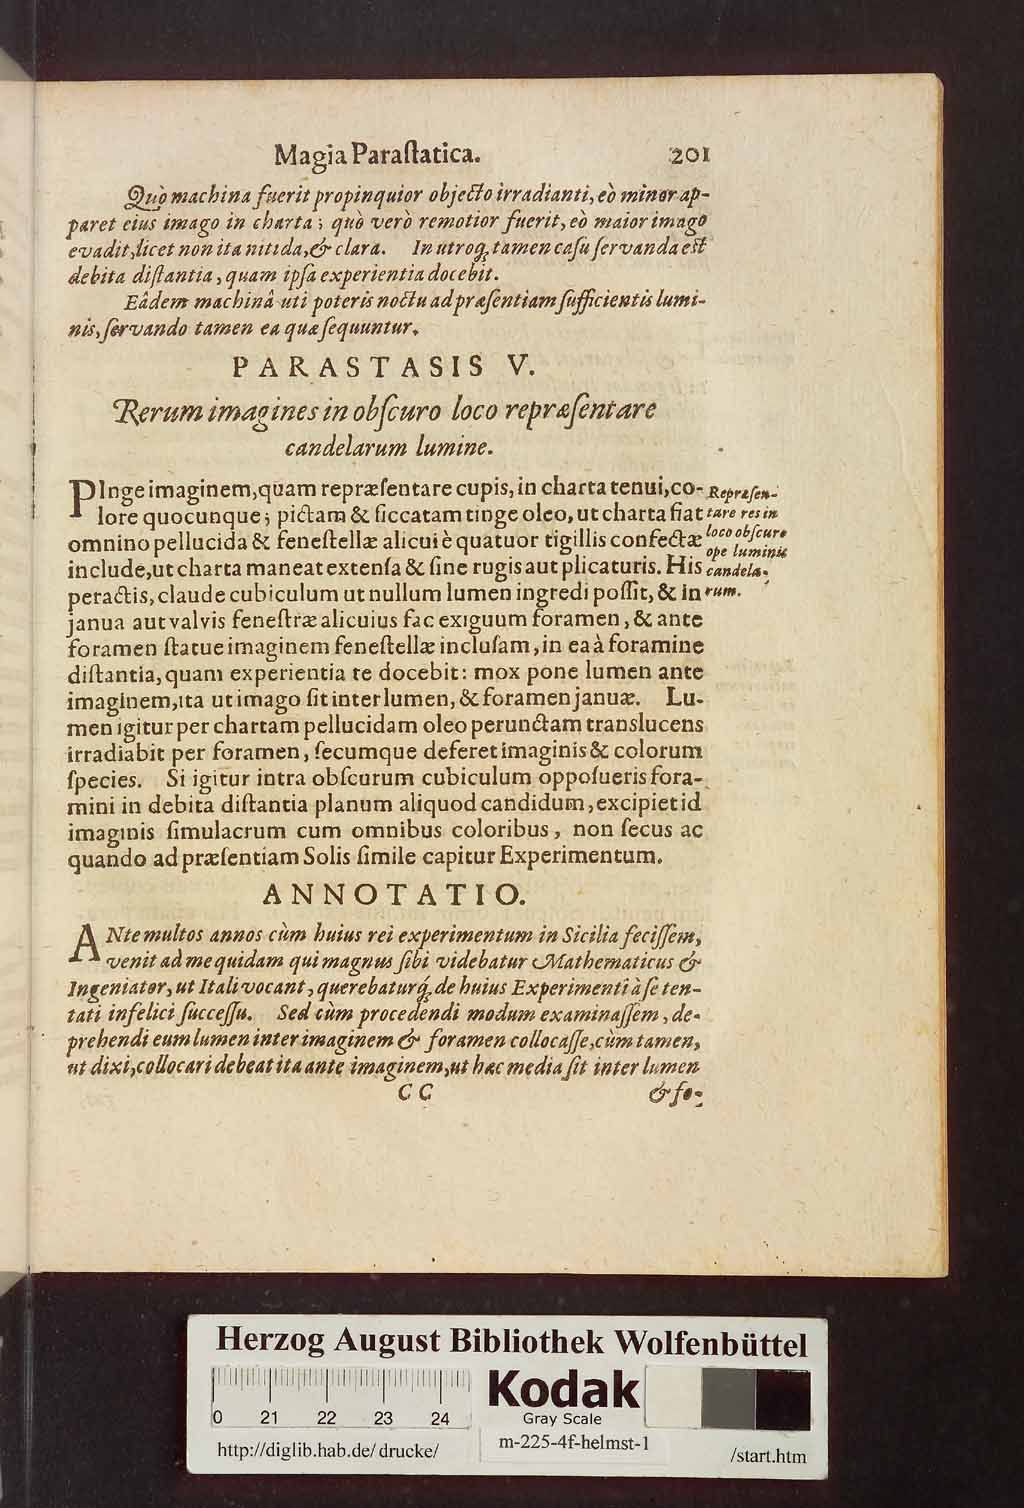 Magia Paraſtatica. 201
Quò machina fuerit propinquior objecto irradianti, eò minor ap-
paret eius imago in charta; quò verò remotior fuerit, eò maior imago
evadit, licet non ita nitida, & clara. In utroq; tamen caſu ſervanda eſt
debita diſtantia, quam ipſa experientia docebit.
Eâdem machinâ uti poteris noctu ad præſentiam ſufficientis lumi-
nis, ſervando tamen ea quæ ſequuntur.
PARASTASIS V.
Rerum imagines in obſcuro loco repræſentare
candelarum lumine.
PInge imaginem, quam repræſentare cupis, in charta tenui, co-
lore quocunque; pictam & ſiccatam tinge oleo, ut charta fiat
omnino pellucida & feneſtellæ alicui è quatuor tigillis confectæ
include, ut charta maneat extenſa & ſine rugis aut plicaturis. His
peractis, claude cubiculum ut nullum lumen ingredi poſſit, & in
janua aut valvis feneſtræ alicuius fac exiguum foramen, & ante
foramen ſtatue imaginem feneſtellæ incluſam, in ea à foramine
diſtantia, quam experientia te docebit: mox pone lumen ante
imaginem, ita ut imago ſit inter lumen, & foramen januæ. Lu-
men igitur per chartam pellucidam oleo perunctam translucens
irradiabit per foramen, ſecumque deferet imaginis & colorum
ſpecies. Si igitur intra obſcurum cubiculum oppoſueris fora-
mini in debita diſtantia planum aliquod candidum, excipiet id
imaginis ſimulacrum cum omnibus coloribus, non ſecus ac
quando ad præſentiam Solis ſimile capitur Experimentum.
Repræſen-
tare res in
loco obſcuro
ope luminis
candela-
rum.
ANNOTATIO.
ANte multos annos cùm huius rei experimentum in Sicilia feciſſem,
venit ad me quidam qui magnus ſibi videbatur Mathematicus &
Ingeniator, ut Itali vocant, querebaturq́; de huius Experimenti à ſe ten-
tati infelici ſucceſſu. Sed cùm procedendi modum examinaſſem, de-
prehendi eum lumen inter imaginem & foramen collocaſſe, cùm tamen,
ut dixi, collocari debeat ita ante imaginem, ut hæc media ſit inter lumen
CC & fo-
Herzog August Bibliothek Wolfenbüttel
0 21 22 23 24
Kodak
Gray Scale
http://diglib.hab.de/drucke/
m-225-4f-helmst-1
/start.htm